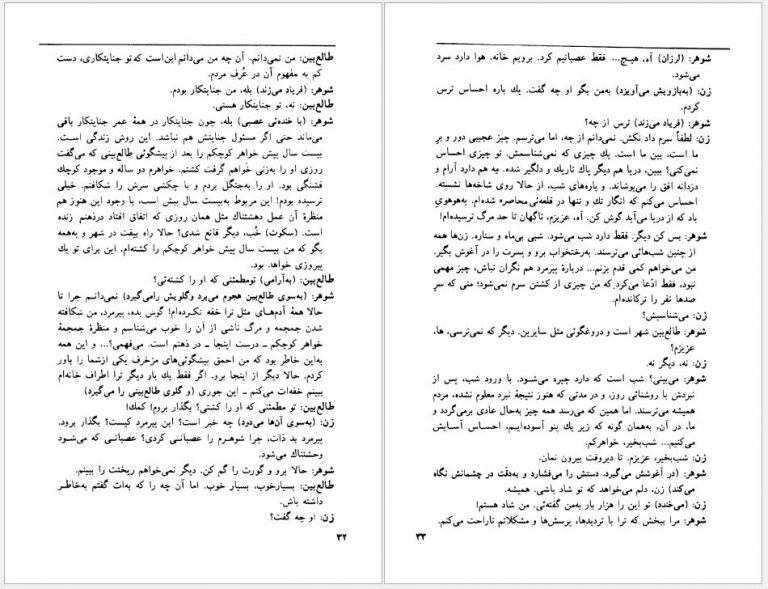 طالع‌بین: من نمی‌دانم. آن چه من می‌دانم این‌است که تو جنایتکاری، دست
کم به مفهوم آن در عُرف مردم.
شوهر: (فریاد می‌زند) بله، من جنایتکار بودم.
طالع‌بین: نه، تو جنایتکار هستی.
شوهر: (با خنده‌ئی عصبی) بله، چون جنایتکار در همهٔ عمر جنایتکار باقی
می‌ماند حتی اگر مسئول جنایتش هم نباشد. این روش زندگی است.
بیست سال پیش خواهر کوچکم را بعد از پیشگوئی طالع‌بینی که می‌گفت
روزی او را به‌زنی خواهم گرفت کشتم. خواهرم ده ساله و موجود کوچك
قشنگی بود. او را به‌جنگل بردم و با چکشی سرش را شکافتم. خیلی
ترسیده بودم! این مربوط به‌بیست سال پیش است، با وجود این هنوز هم
منظرهٔ آن عمل دهشتناك مثل همان روزی که اتفاق افتاد درذهنم زنده
است. (سکوت) خُب، دیگر قانع شدی؟ حالا راه بیفت در شهر و به‌همه
بگو که من بیست سال پیش خواهر کوچکم را کشته‌ام. این برای تو یك
پیروزی خواهد. بود.
طالع‌بین: (به‌آرامی) تومطمئنی که او را کشته‌ئی؟
شوهر: (به‌سوی طالع‌بین هجوم می‌برد وگلویش رامی‌گیرد) نمی‌دانـم چرا تا
حالا همهٔ آدم‌هـای مثل ترا خفه نکـرده‌ام! گوش بده، پیرمرد، من شکافته
شدن جمجمه و مرگ ناشی از آن را خوب می‌شناسم و منظرهٔ جمجمهٔ
خواهر کوچکم ــ درست اینجا ــ در ذهنم است. می‌فهمی؟... و این همه
به‌این خاطر بود که من احمق پیشگوئی‌های مزخرف یکی ازشما را باور
کردم. حالا دیگر از اینجا برو. اگر فقط یك بار دیگر ترا اطراف خانه‌ام
ببینم خفه‌ات می‌کنم ــ این جوری (و گلوی طالع‌بینی را می‌گیرد)
طالع‌بین: تو مطمئنی که او را کشتی؟ بگذار بروم! کمك!
زن: (به‌سوی آن‌ها می‌دود) چه خبر است؟ این پیرمرد کیست؟ بگذار برود.
پیرمرد بد ذات، چرا شوهـرم را عصبانـی کردی؟ عصبانی که می‌شـود
وحشتناك می‌شود.
شوهر: حالا برو و گورت را گم کن. دیگر نمی‌خواهم ریختت را ببینم.
طالع‌بین: بسیارخوب، بسیار خوب. اما آن چه را که به‌ات گفتم به‌خاطـر
داشته باش.
زن: او چه گفت؟
۳۲
شوهر: (لرزان) آه، هیـچ... فقط عصبانیم کرد. برویم خانه. هوا دارد سرد
می‌شود.
زن: (به‌بازویش می‌آویزد) به‌من بگو او چه گفت. یك باره احساس ترس
کردم.
شوهر: (فریاد می‌زند) ترس از چه؟
زن: لطفاً سرم داد نکش. نمی‌دانم از چه، اما می‌ترسم. چیز عجیبی دور و برِ
ما است، بین ما است. یك چیزی که نمی‌شناسمش. تو چیزی احساس
نمی‌کنی؟ ببین، دریا هم دیگر پاك تاریك و دلگیر شده. مِه هم دارد آرام و
دزدانه افق را می‌پوشاند. و پاره‌های شب، از حالا روی شاخه‌ها نشسته.
احساس می‌کنم که انگار تك و تنها در قلعه‌ئی محاصره شده‌ام. به‌هوهوی
باد که از دریا می‌آید گوش کن. آه، عزیزم، ناگهان تا حد مرگ ترسیده‌ام!
شوهر: بس کن دیگر. فقط دارد شب می‌شود. شبی بی‌ماه و ستاره. زن‌ها همه
از چنین شب‌هائی می‌ترسند. به‌رختخواب برو و پسرت را در آغوش بگیر.
من می‌خواهم کمی قدم بزنم... دربارهٔ پیرمرد هم نگران نباش، چیز مهمی
نبود، فقط ادعا می‌کرد که من چیزی از کشتن سرم نمی‌شود؛ منی که سرِ
صدها نفر را ترکانده‌ام.
زن: می‌شناسیش؟
شوهر: طالع‌بین شهر است و دروغگوئی مثل سایرین. دیگر که نمی‌ترسی، ها،
عزیزم؟
زن: نه، دیگر نه.
شوهر: می‌بینی؟ شب است که دارد چیره می‌شـود. با ورود شب، پس از
نبردش با روشنائی روز، و در مدتی که هنوز نتیجهٔ نبرد معلوم نشده، مردم
همیشه می‌ترسند. اما همین که می‌رسد همه چیز به‌حال عادی برمی‌گردد و
ما، در آن، به‌همان گونه که زیر یك پتو آسوده‌ایـم، احسـاس آسـایش
می‌کنیم... شب‌بخیر، خواهرکم.
زن: شب‌بخیر، عزیزم. تا دیروقت بیرون نمان.
شوهر: (در آغوشش می‌گیرد. دستش را می‌فشارد و به‌دقت در چشمانش نگاه
می‌کند) زن، دلم می‌خواهد که تو شاد باشی. همیشه.
زن: (می‌خندد) تو این را هزار بار به‌من گفته‌ئی. من شاد هستم!
شوهر: مرا ببخش که ترا با تردیدها، پرسش‌ها و مشکلاتم ناراحت می‌کنم.
۳۳